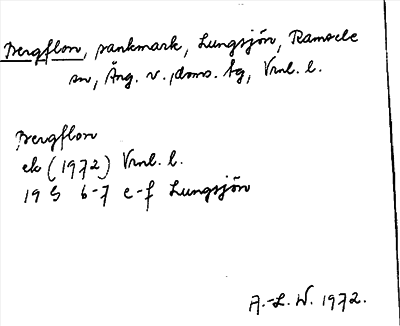 Bergflon, sankmark, Lungsjön, Ramsele
sn, Ång. v., doms. bg, Vrnl. l.
Bergflon
ek (1972) Vrnl. l.
19 G 6-7 e-f Lungsjön
A.-L. W. 1972.